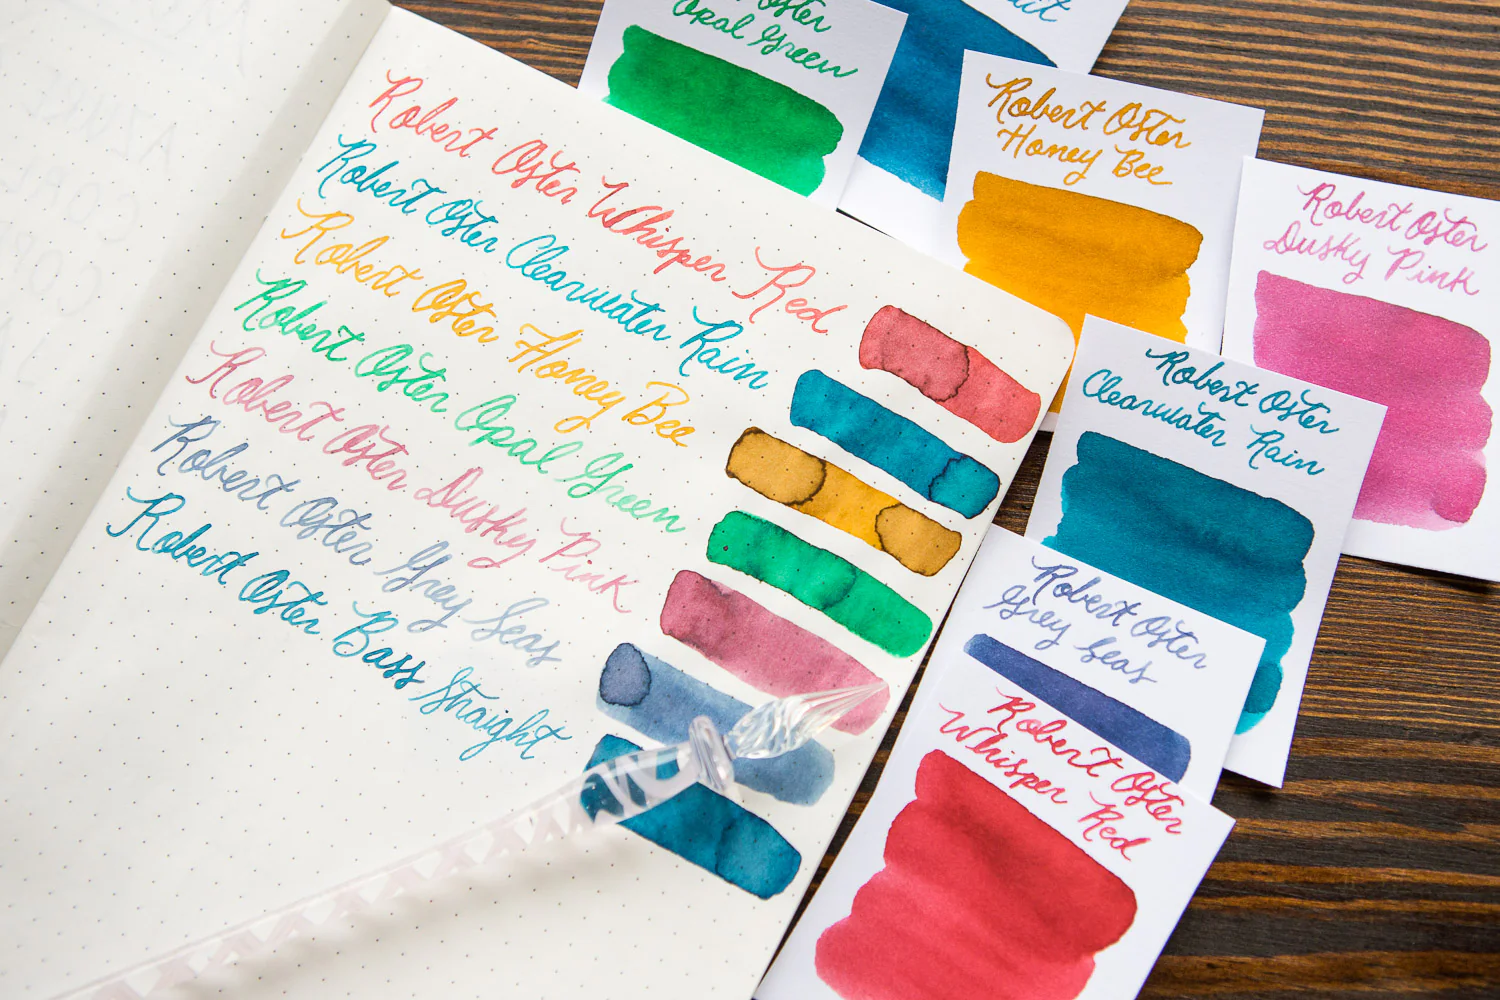 Robert Oster Whisper Red
Robert Oster Clearwater Rain
Robert Oster Honey Bee
Robert Oster Opal Green
Robert Oster Dusky Pink
Robert Oster Grey Seas
Robert Oster Bass Straight
Oster
Opal Green
Robert Oster
Honey Bee
Robert Oster
Dusky Pink
Robert Oster
Clearwater Rain
Robert Oster
Grey Seas
Robert Oster
Whisper Red